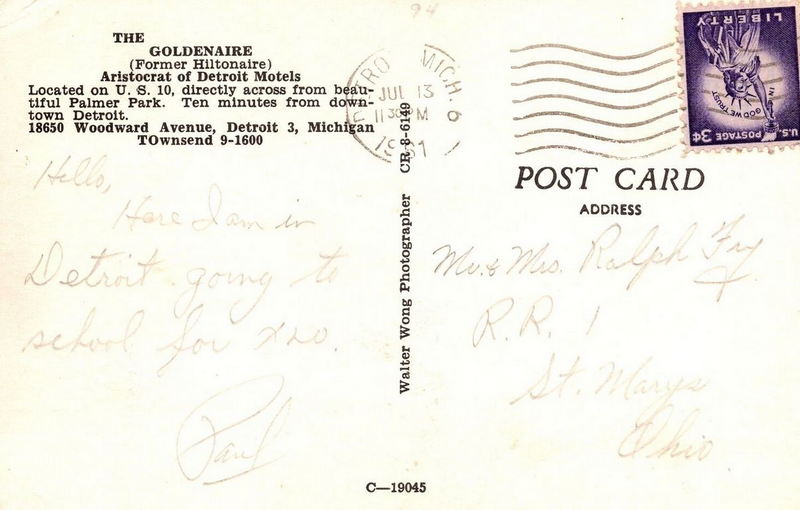 94
THE
GOLDENAIRE
(Former Hiltonaire)
Aristocrat of Detroit Motels
Located on U. S. 10, directly across from beau-
tiful Palmer Park. Ten minutes from down-
town Detroit.
18650 Woodward Avenue, Detroit 3, Michigan
TOwnsend 9-1600
Hello,
Here I am in
Detroit going to
school for
Paul
Walter Wong Photographer CR-8-6149
C—19045
MICH. 6
JUL 13
11 30 PM
LIBERTY
IN GOD WE TRUST
U.S. POSTAGE 3¢
POST CARD
ADDRESS
Mr. & Mrs. Ralph Fry
R.R. 1
St. Marys
Ohio